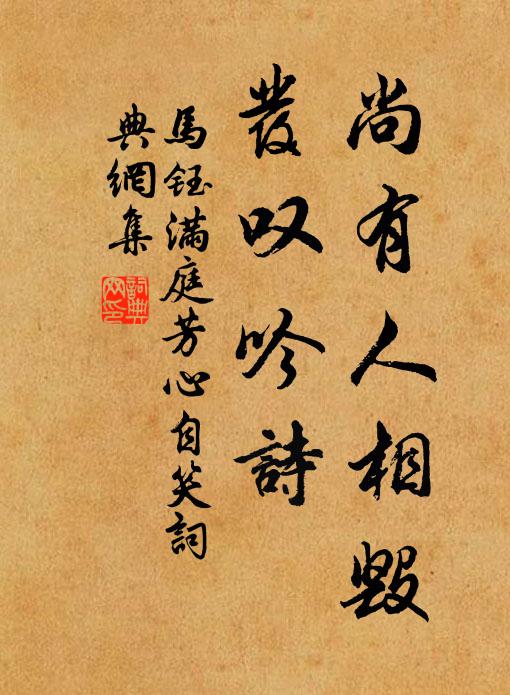 尚有人相毀
發叹吟詩
馬鈺滿庭芳心自笑詞
典網集
詞典
网印